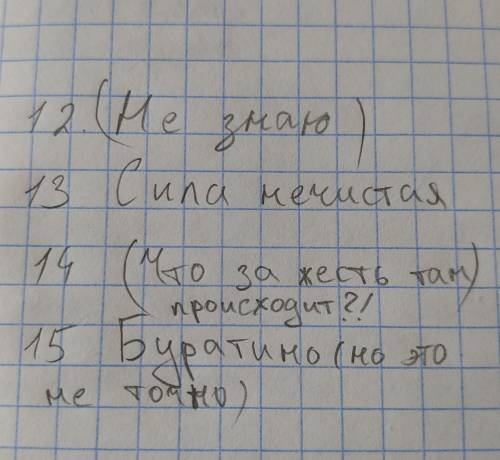 12. (Не знаю)
13 Сила нечистая
14 (Что за жесть там)
происходит?!
15 Буратино (но это
не точно)